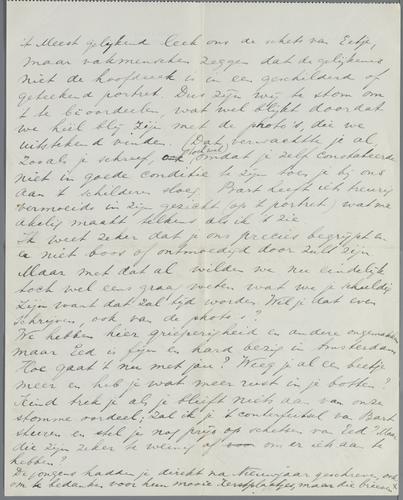 't Meest gelijkend leek ons de schets van Eetje,
maar vakmenschen zeggen dat de gelijkenis
niet de hoofdzaak is in een geschilderd of
geteekend portret. Dus zijn wij te stom om
't te beoordeelen, wat wel blijkt doordat
we heel blij zijn met de photo's, die we
uitstekend vinden. Dat verwachtte je al
zooals je schreef, ook omdat je zelf constateerde
niet in goede conditie te zijn toen je bij ons
aan 't schilderen sloeg. Bart heeft iets treurig
vermoeids in zijn gezicht (op 't portret) wat me
akelig maakt telkens als ik 't zie
Ik weet zeker dat je ons precies begrijpt en
en niet boos of ontmoedigd door zult zijn
Maar met dat al wilden we nu eindelijk
toch wel eens graag weten wat we je schuldig
zijn want dat zal tijd worden. Wil je dat even
schrijven, ook van de photo's?
We hebben hier grieperigheid en andere ongemakken
maar Eed is fijn en hard bezig in Amsterdam
Hoe gaat 't nu met jou? Weeg je al een beetje
meer en heb je wat meer rust in je botten?
Kind trek je als je blieft niets aan van onze
stomme oordeel; zal ik je 't conterfeitsel van Bart
sturen en stel je nog prijs op schetsen van Eed? Maar
die zijn zeker te weinig of om er iets aan te
hebben?
De jongens hadden je direkt na Nieuwjaar geschreven, ook
om te bedanken voor hun mooie Kerstplaatjes, maar die brieven